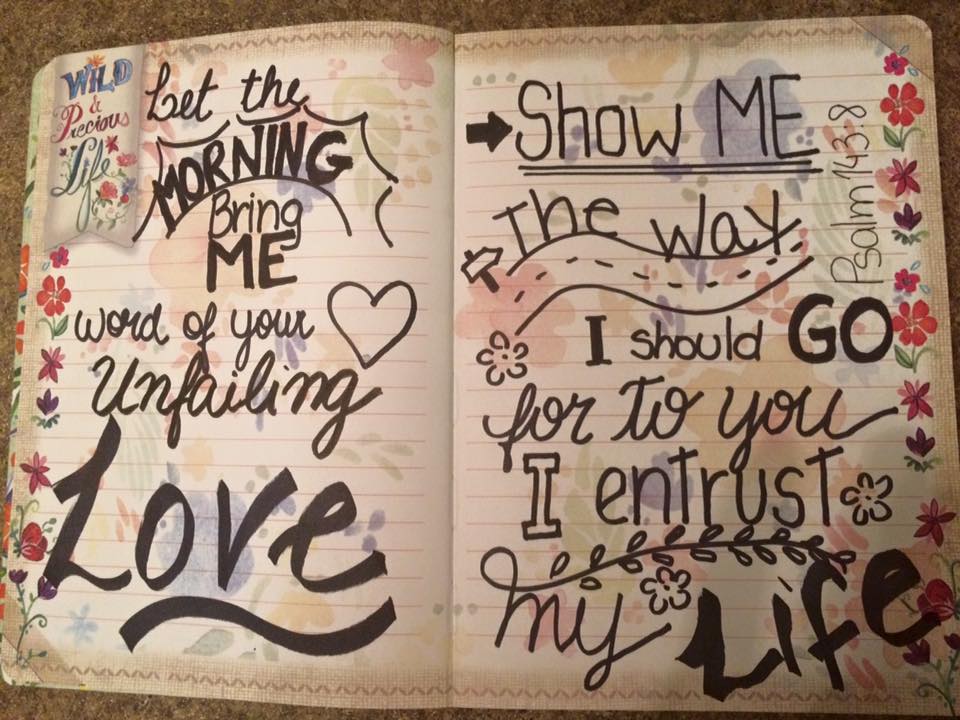 WILD
&
Precious
Life
Let the
MORNING
Bring
ME
word of your
Unfailing
Love
Show ME
The Way
I should GO
for to you
I entrust
my Life
Psalm 143:8